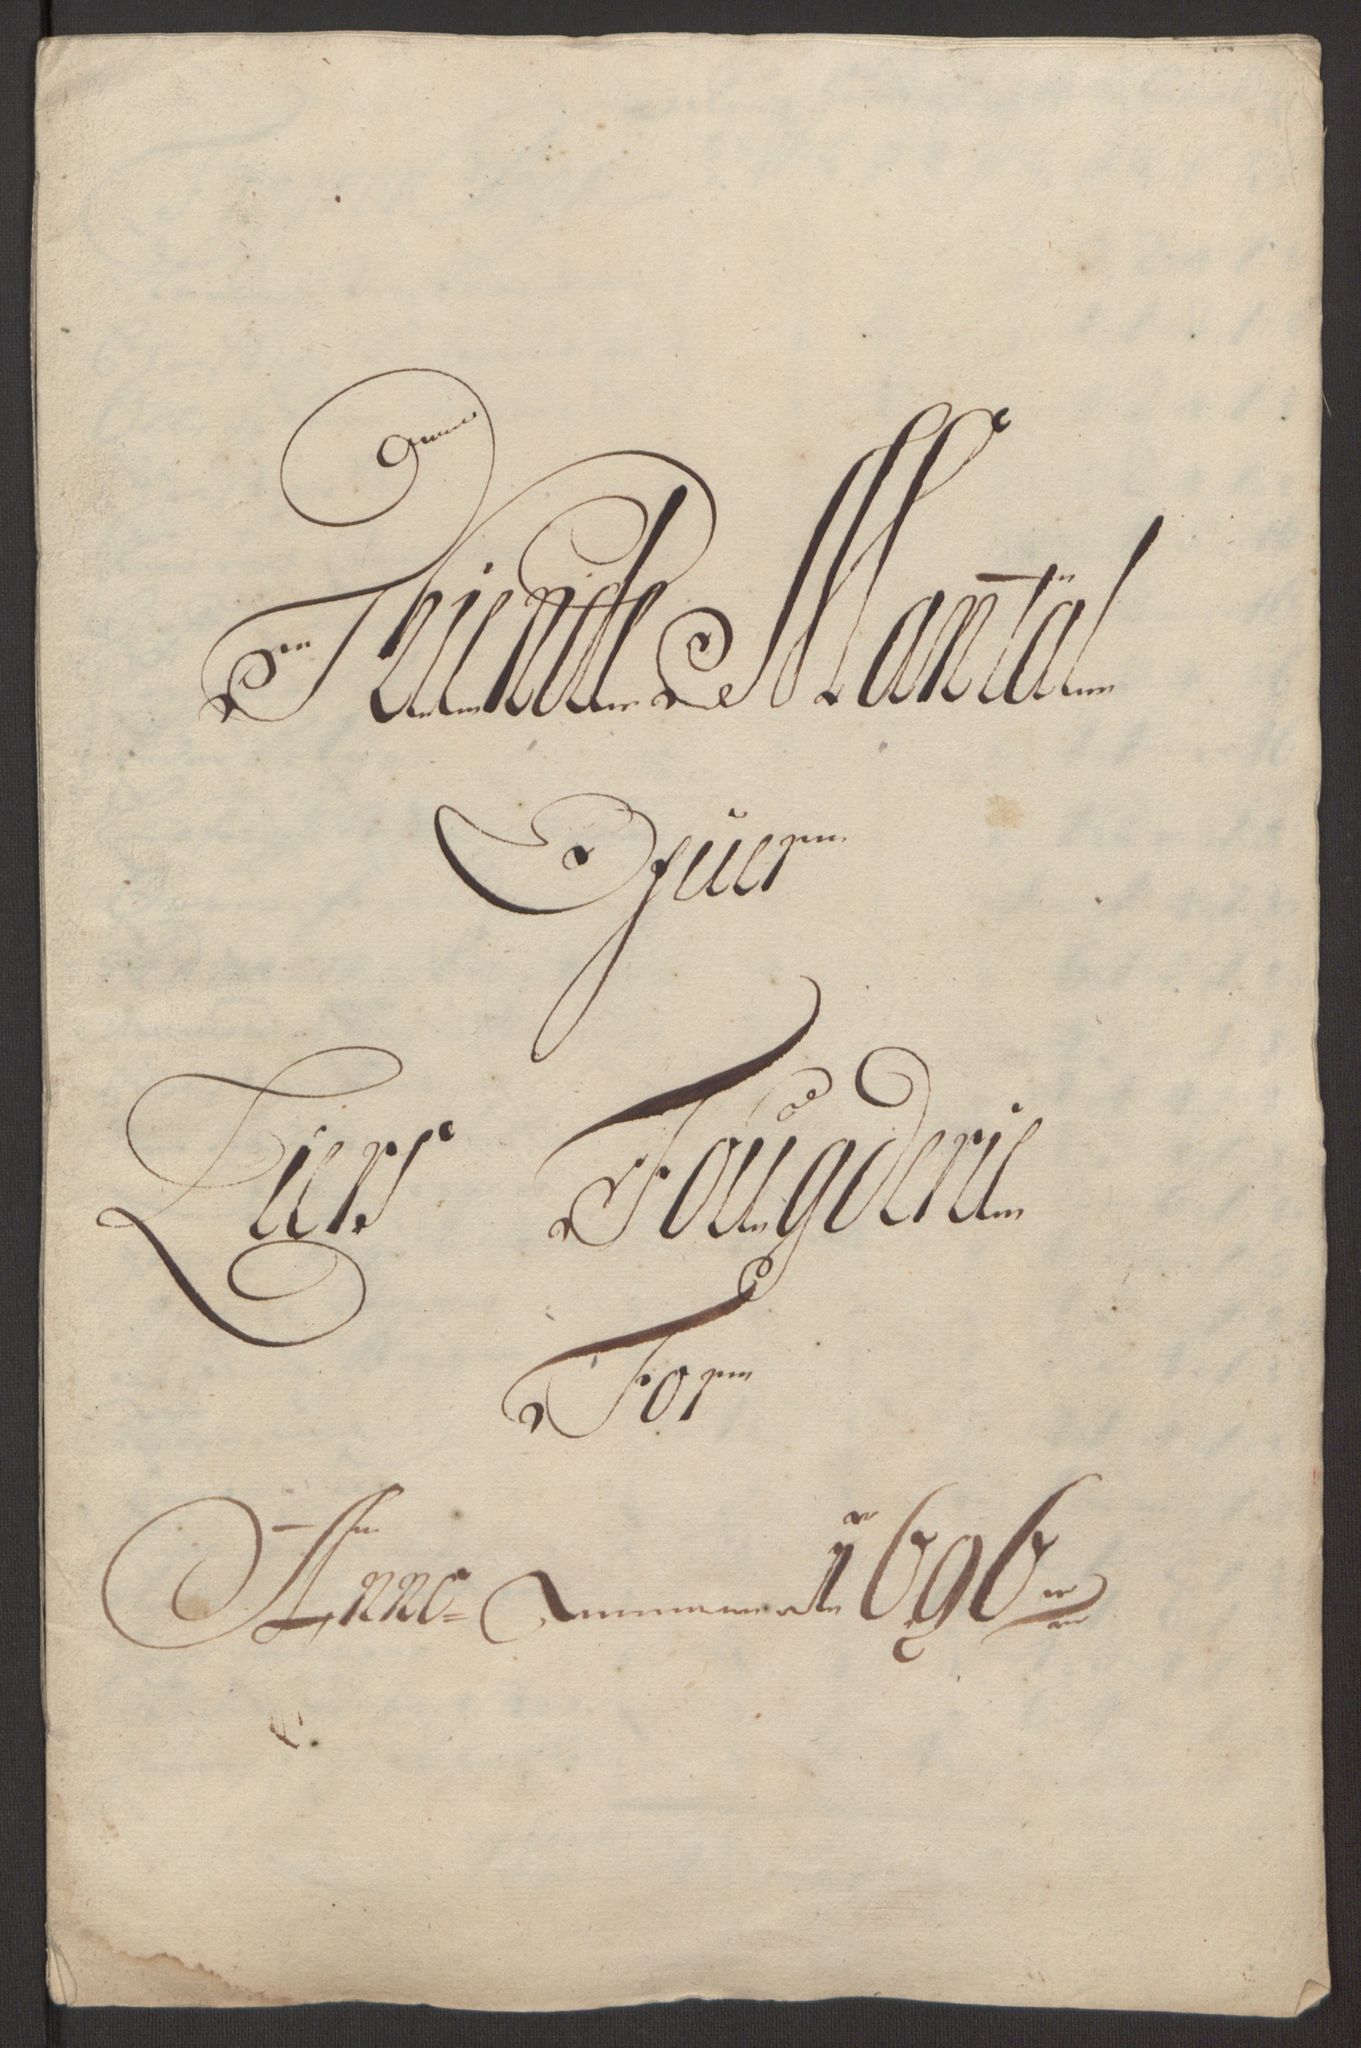 Thiende Mantal
Ofuer
Liers Fougderie
For
Anno 1696